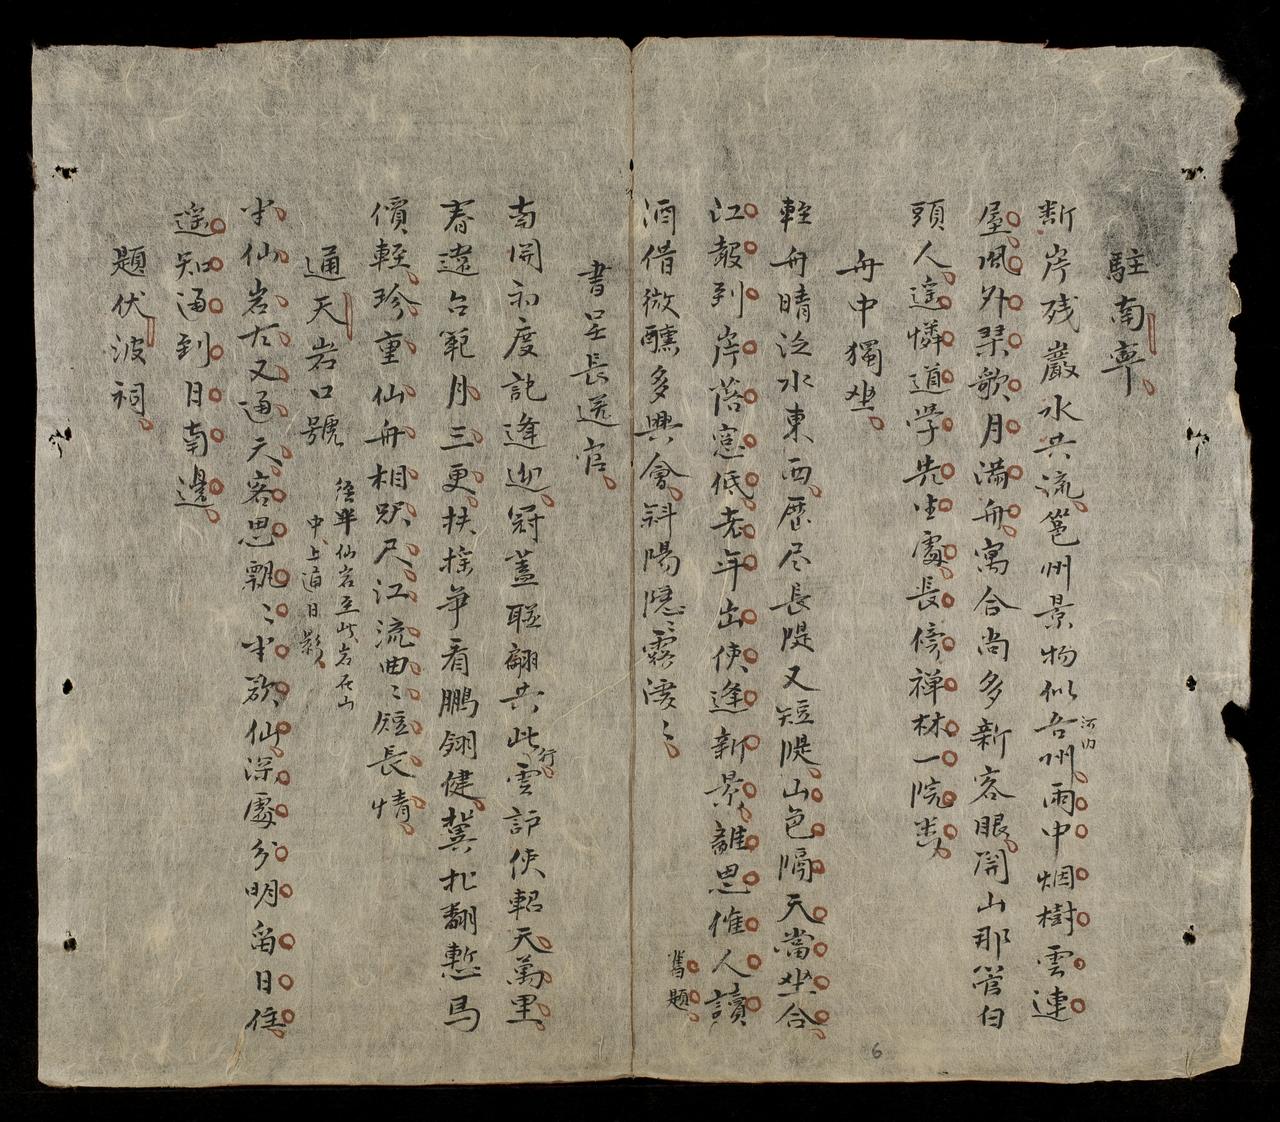 駐南寧
断岸残巖水共流邕州景物似吾州河内雨中烟樹雲連
屋風外琴歌月滿舟寓合尚多新客眼開山那管白
頭人遥憐道学先生處長傍禅林一院
舟中獨坐
輕舟晴泛水東西歷尽長隄又短隄山色隔天當坐合
江聲到岸蓓窓低老年出使逢新景離思催人讀
舊題
酒借微醺多興會斜陽隱〻霧凄〻
書呈長送官
南関初度記逢迎冠蓋联翩共此行雲護使軺天萬里
春違台範月三更扶摇争看鵬翎健冀北翻慙馬
價輕珍重仙舟相咫尺江流曲〻短長情
通天岩口號
徑半仙岩至此岩在山
中上通日影
半仙岩右又通天客思飄〻半欲仙深處分明留日住
遥知通到日南邊
題伏波祠
6